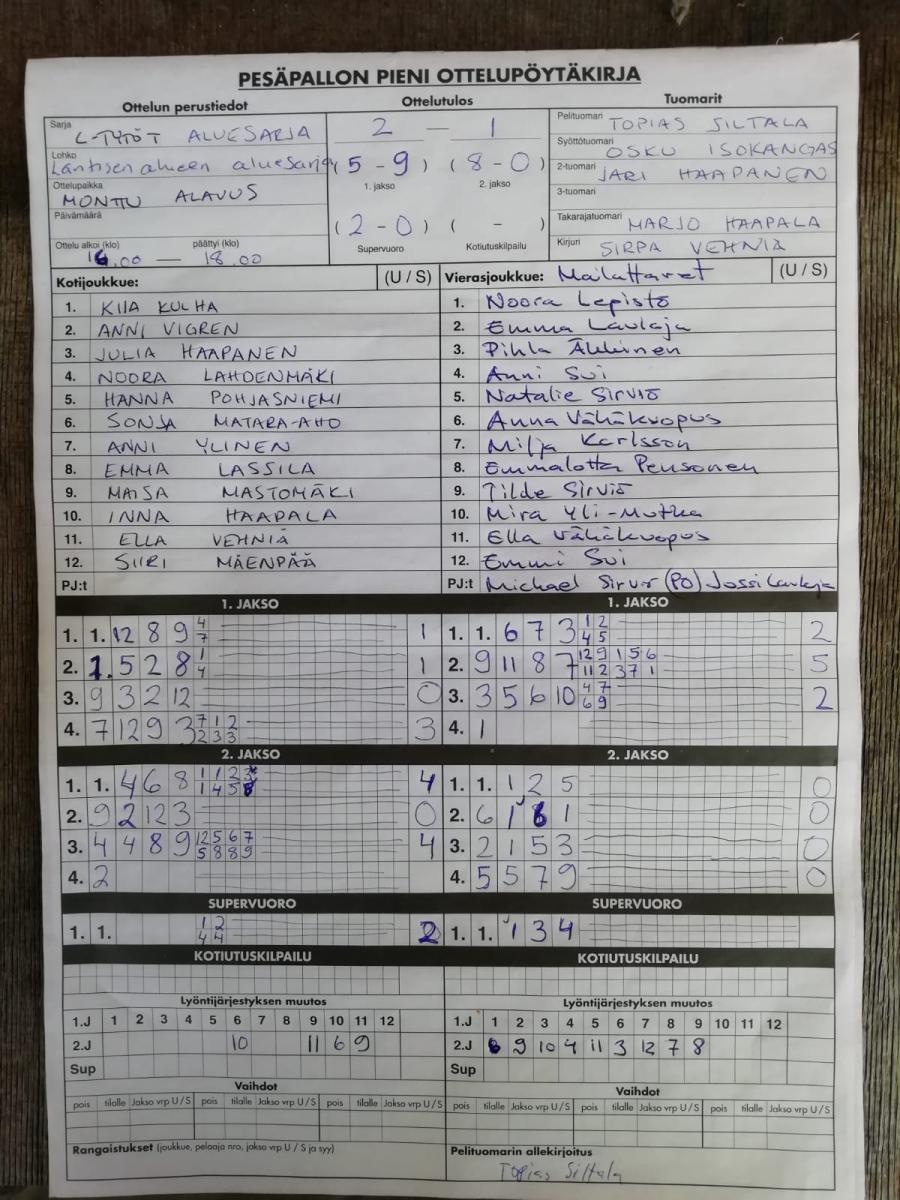 PESÄPALLON PIENI OTTELUPÖYTÄKIRJA
Ottelun perustiedot
Ottelutulos
Tuomarit
Sarja C-TYTÖT ALUESARJA
2 — 1
Pelituomari TOPIAS SILTALA
Lohko Läntisen alueen aluesarja
(5 - 9) (8 - 0)
1. jakso 2. jakso
Syöttötuomari OSKU ISOKANGAS
Ottelupaikka MONTTU ALAVUS
2-tuomari JARI HAAPANEN
Päivämäärä
(2 - 0) ( - )
Supervuoro Kotiutuskilpailu
3-tuomari
Takarajatuomari MARJO HAAPALA
Ottelu alkoi (klo) päättyi (klo)
16.00 — 18.00
Kirjuri SIRPA VEHNIÄ
Kotijoukkue: (U / S) Vierasjoukkue: Mailattaret (U / S)
1. KIIA KULHA 1. Noora Lepistö
2. ANNI VIGREN 2. Emma Laulaja
3. JULIA HAAPANEN 3. Pihla Äkkinen
4. NOORA LAHDENMÄKI 4. Anni Sui
5. HANNA POHJASNIEMI 5. Natalie Sirviö
6. SONJA MATARA-AHO 6. Anna Vähäkuopus
7. ANNI YLINEN 7. Milja Karlsson
8. EMMA LASSILA 8. Emmalotta Pensonen
9. MAISA MASTOMÄKI 9. Tilde Sirviö
10. INNA HAAPALA 10. Mira Yli-Mutka
11. ELLA VEHNIÄ 11. Ella Vähäkuopus
12. SIIRI MÄENPÄÄ 12. Emmi Sui
PJ:t PJ:t Michael (PO) Jossi Laulaja
1. JAKSO 1. JAKSO
1. 1. 12 8 9 4 7 1 1. 1. 6 7 3 1 2 4 5 2
2. 1. 5 2 8 1 4 1 2. 9 11 8 7 12 9 1 5 6 11 2 3 7 1 5
3. 9 3 2 12 0 3. 3 5 6 10 4 7 6 9 2
4. 7 12 9 3 7 1 2 2 3 3 3 4. 1
2. JAKSO 2. JAKSO
1. 1. 4 6 8 1 1 2 3 1 4 5 8 4 1. 1. 1 2 5 0
2. 9 2 12 3 0 2. 6 1 8 1 0
3. 4 4 8 9 12 5 6 7 5 8 8 9 4 3. 2 1 5 3 0
4. 2 4. 5 5 7 9 0
SUPERVUORO SUPERVUORO
1. 1. 1 2 4 4 2 1. 1. 1 3 4
KOTIUTUSKILPAILU KOTIUTUSKILPAILU
Lyöntijärjestyksen muutos Lyöntijärjestyksen muutos
1.J 1 2 3 4 5 6 7 8 9 10 11 12 1.J 1 2 3 4 5 6 7 8 9 10 11 12
2.J 10 11 6 9 2.J 6 9 10 4 11 3 12 7 8
Sup Sup
Vaihdot Vaihdot
pois tilalle Jakso vrp U / S pois tilalle Jakso vrp U / S pois tilalle Jakso vrp U / S pois tilalle Jakso vrp U / S pois tilalle Jakso vrp U / S pois tilalle Jakso vrp U / S
Rangaistukset (joukkue, pelaaja nro, jakso vrp U / S ja syy) Pelituomarin allekirjoitus
Topias Siltala